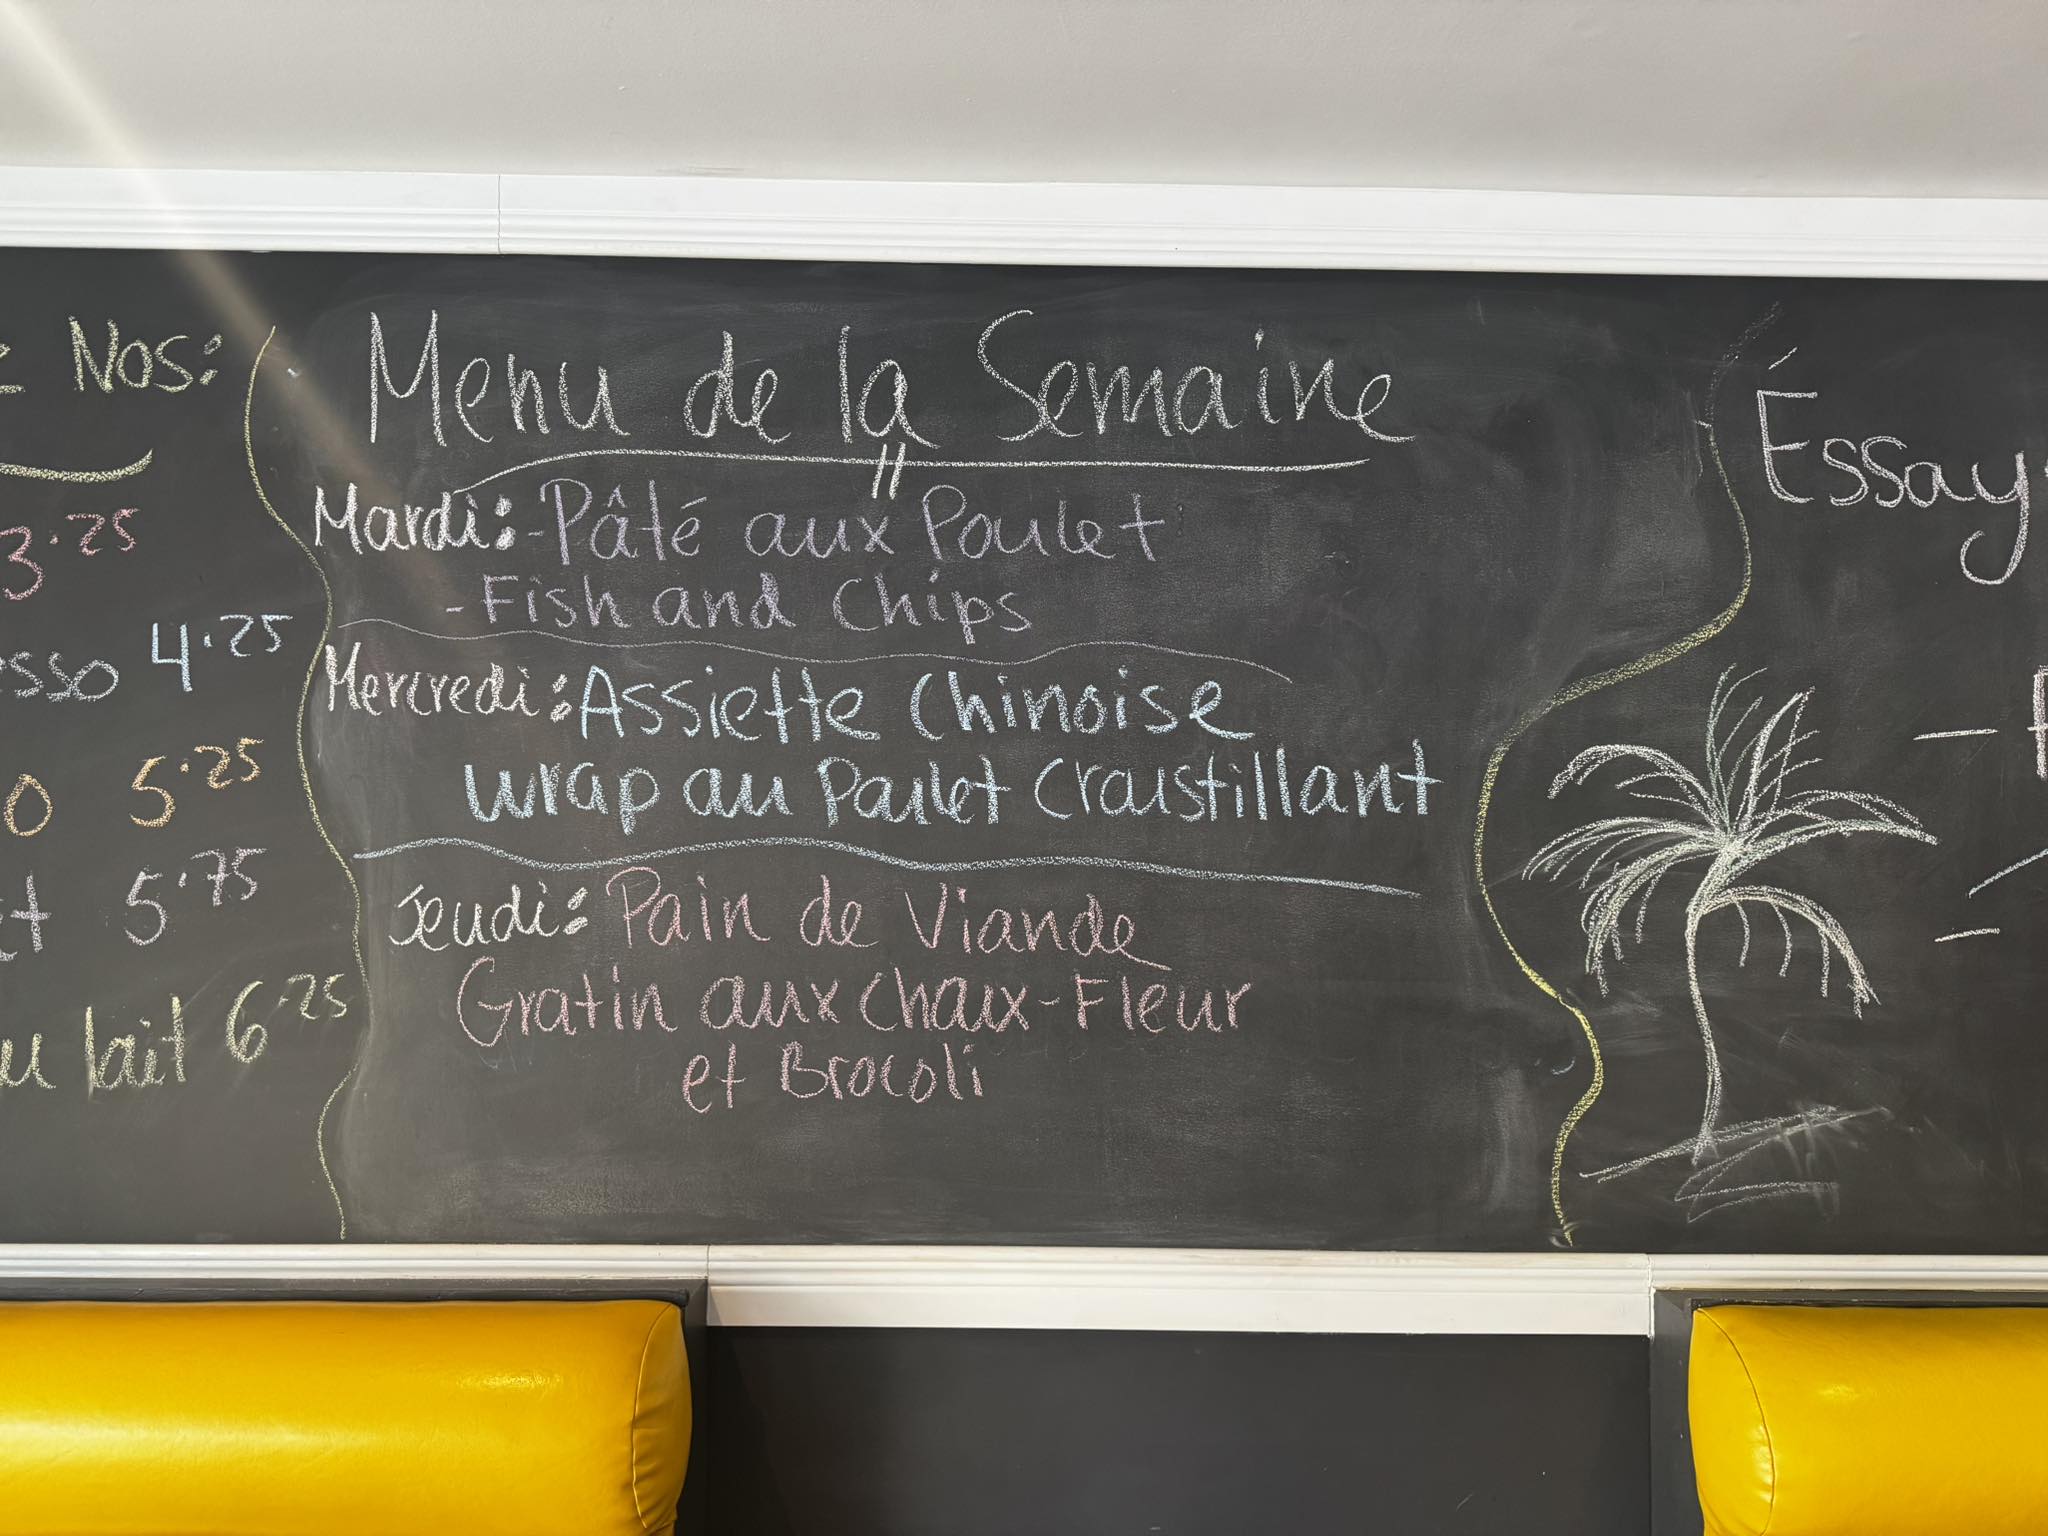 Nos:
3.25
4.25
5.25
5.75
lait 6.25
Menu de la Semaine
Mardi: - Pâté aux Poulet
- Fish and Chips
Mercredi: Assiette Chinoise
Wrap au Poulet Croustillant
Jeudi: Pain de Viande
Gratin aux choux-Fleur
et Brocoli